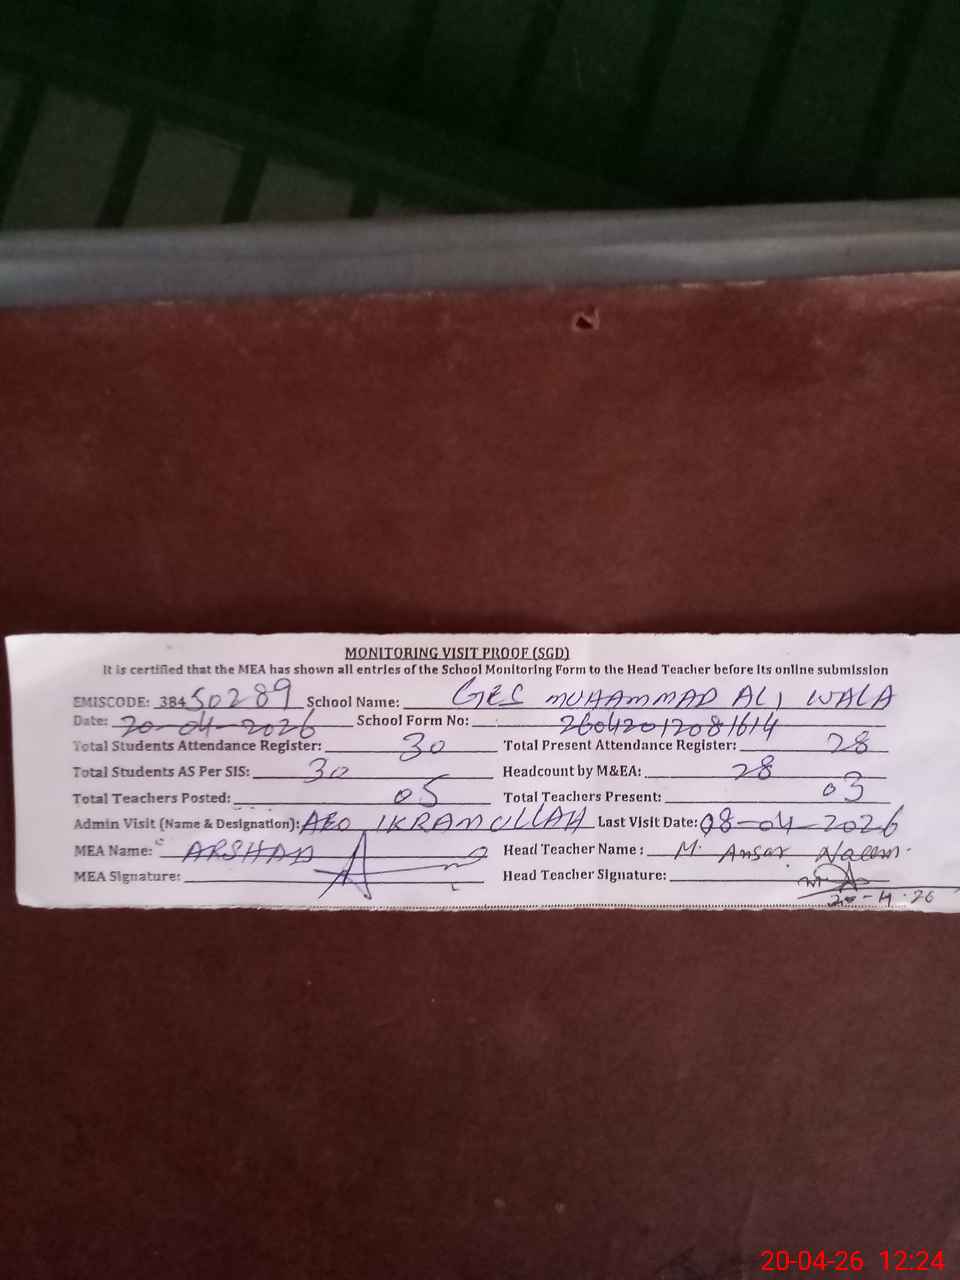 MONITORING VISIT PROOF (SGD)
It is certified that the MEA has shown all entries of the School Monitoring Form to the Head Teacher before its online submission
EMISCODE: 38450289 School Name: GES MUHAMMAD ALI WALA
Date: 20-04-2026 School Form No: 26042012081614
Total Students Attendance Register: 30 Total Present Attendance Register: 28
Total Students AS Per SIS: 30 Headcount by M&EA: 28
Total Teachers Posted: 05 Total Teachers Present: 03
Admin Visit (Name & Designation): AEO IKRAMULLAH Last Visit Date: 08-04-2026
MEA Name: ARSHAD Head Teacher Name: M. Ansar Naeem.
MEA Signature: Head Teacher Signature:
20-4-26
20-04-26 12:24